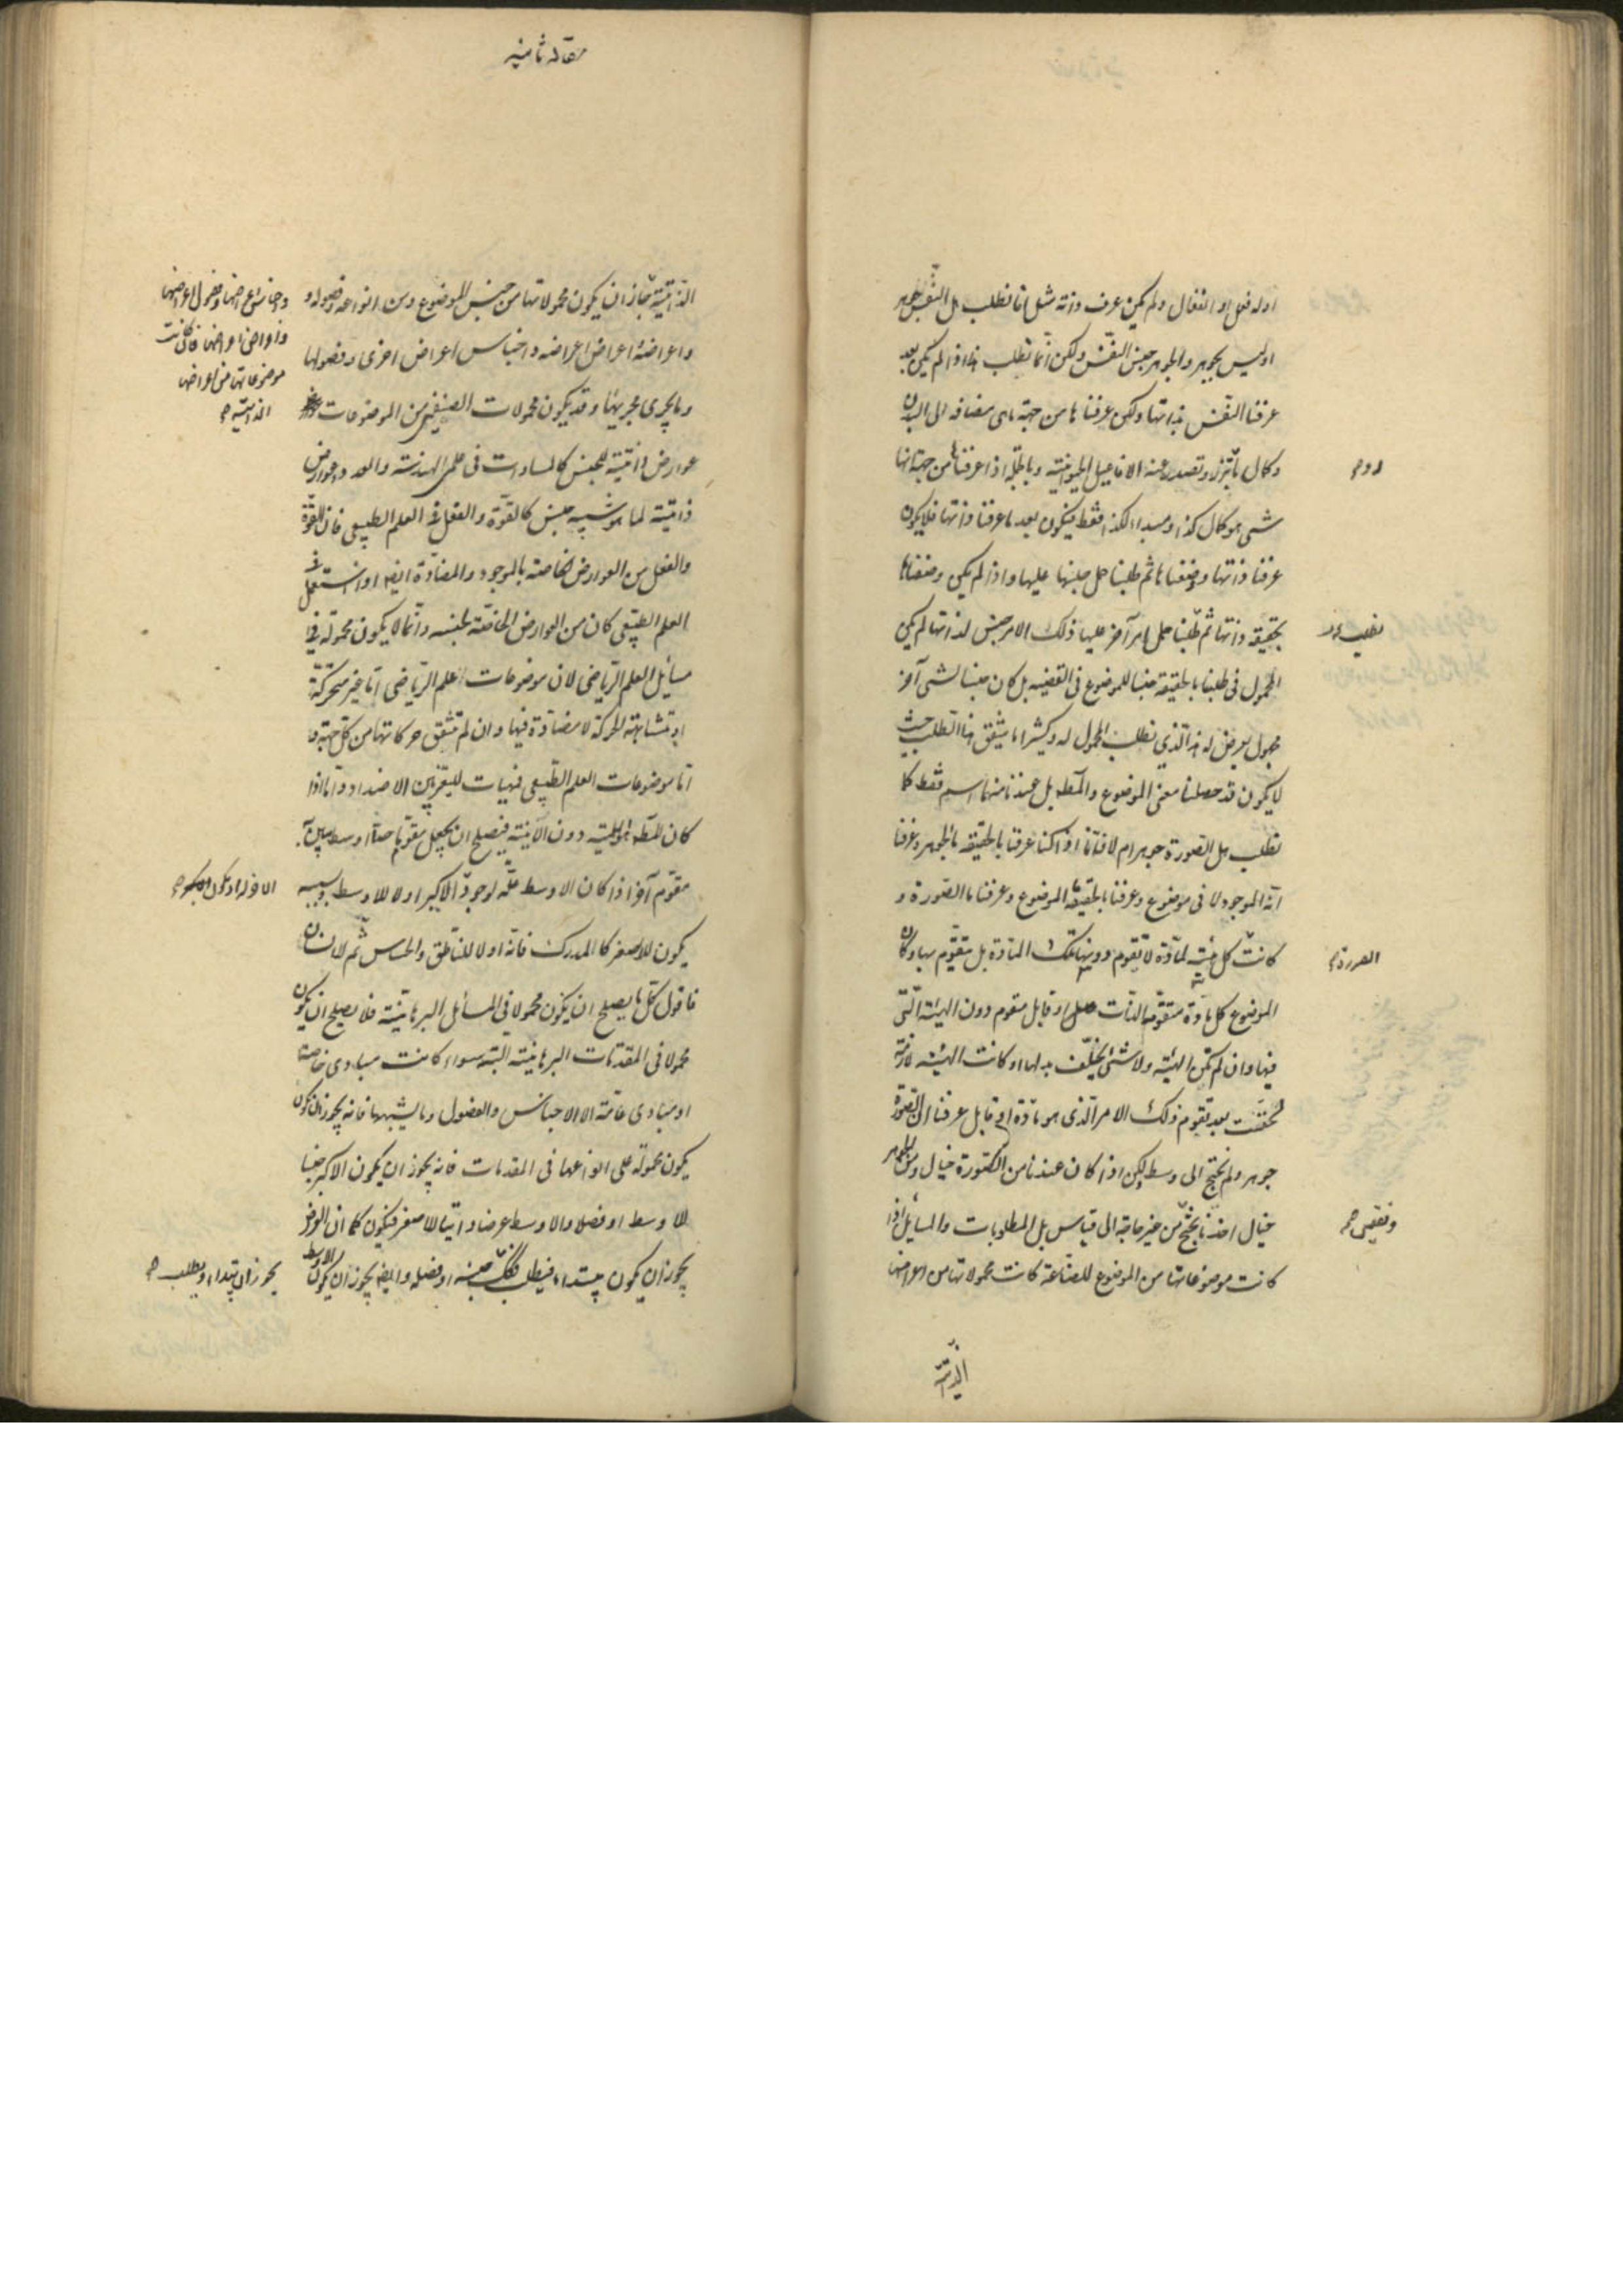 او له فعل او انفعال ولم يكن عرف ذاته مثل انا نطلب هل النفس جوهر
او ليس بجوهر والجوهر جنس النفس ولكن انما نطلب هذا اذا لم يكن بعد
عرفنا النفس بذاتها ولكن عرفناها من جهة ما هى مضافه الى البدن
وكمال ما تتميز وتصدر عنه الافاعيل الحيوانية وبالجملة اذا عرفناها من جهة انها
شى هو كمال كذا ومبدا لكذا فقط فيكون بعد ما عرفنا ذاتها فلا يكون
عرفنا ذاتها ووضعناها ثم طلبنا حمل جنسها عليها واذا لم يكن وضعناها
بحقيقة ذاتها ثم طلبنا حمل امر آخر عليها ذلك الامر جنس لذاتها لم يكن
نطلب
المحمول فى طلبنا بالحقيقة جنسا للموضوع فى القضيه بل كان جنسا لشى آخر
مجهول يعرض له هذا الذي نطلب المحمول له وكثيرا ما يتفق هذا الطلب حيث
لا يكون قد حصلنا معنى الموضوع والمط بل عندنا منهما اسم فقط كما
نطلب هل الصورة جوهر ام لا فانا اذا كنا عرفنا بالحقيقه ما الجوهر وعرفنا
انه الموجود لا فى موضوع وعرفنا بالحقيقة ما الموضوع وعرفنا ما الصورة و
كانت كل هيئة لمادة لا تقوم دونها تلك المادة بل تتقوم بها وكان
الصورة
الموضوع كل مادة متقومة الذات او قابل متقوم دون الهيئة التى
فيها وان لم تكن الهيئة ولا شئ يخلف بدلها او كانت الهيئة لازمة
لحقت بعد تقوم ذلك الامر الذى هو مادة او قابل عرفنا ان الصورة
جوهر ولم نحتج الى وسط لكن اذا كان عندنا من الصورة خيال ومن الجوهر
خيال اخذنا نحتج من غير حاجة الى قياس بل المطلوبات والمسايل اذا
كانت موضوعاتها من الموضوع للصناعة كانت محمولاتها من اعراضها
الذاتية
مقاله ثانيه
الذاتية جاز ان يكون محمولاتها من جنس الموضوع ومن انواعه وفصوله و
واعراضه واعراض اعراضه واجناس اعراض اخرى وفصولها
واجناس اعراضها وفصول اعراضها
واعراض اعراضها فاذا كانت
موضوعاتها من اعراضها
الذاتية
وما يجرى مجريها وقد يكون محمولات الصنفين من الموضوعات
عوارض ذاتية للجنس كالمساوات فى علمى الهندسة والعدد وعوارض
ذاتية لما هو شبيه جنس كالقوة والفعل فى العلم الطبيعى فان القوة
والفعل من العوارض الخاصة بالموجود والمضادة ايضا اذا استعمل فى
العلم الطبيعى كان من العوارض الخاصة لجنسه وانما لا يكون محموله فى
مسائل العلم الرياضى لان موضوعات العلم الرياضى اما غير متحركة
او متشابهة الحركة لا مضادة فيها وان لم تتفق حركاتها من كل جهة و
اما موضوعات العلم الطبيعى فهيات للتغير بين الاضداد واما اذا
كان المط هو اللمية دون الانية فيصلح ان يجعل مقوم ما حدا اوسط بين
مقوم آخر اذا كان الاوسط علة لوجود الاكبر اولا للاوسط وبسببه
يكون للاصغر كالمدرك فانه اولا للناطق والحساس ثم للانسان
فاقول كل ما يصلح ان يكون محمولا فى المسائل البرهانية فلا يصلح ان يكون
محمولا فى المقدمات البرهانية البتة سواء كانت مبادى خاصة
او مبادى عامة الا الاجناس والفصول وما يشبهها فانه يجوز ان يكون
يكون محموله على انواعها فى المقدمات فانه يجوز ان يكون الاكبر جنسا
للاوسط او فصلا والاوسط عرضا ذاتيا للاصغر فيكون كما ان العرض
يجوز ان يكون مبتداء فيطلب كذلك جنسه او فصله وايضا يجوز ان يكون الاوسط
يجوز ان يبتداء ويطلب